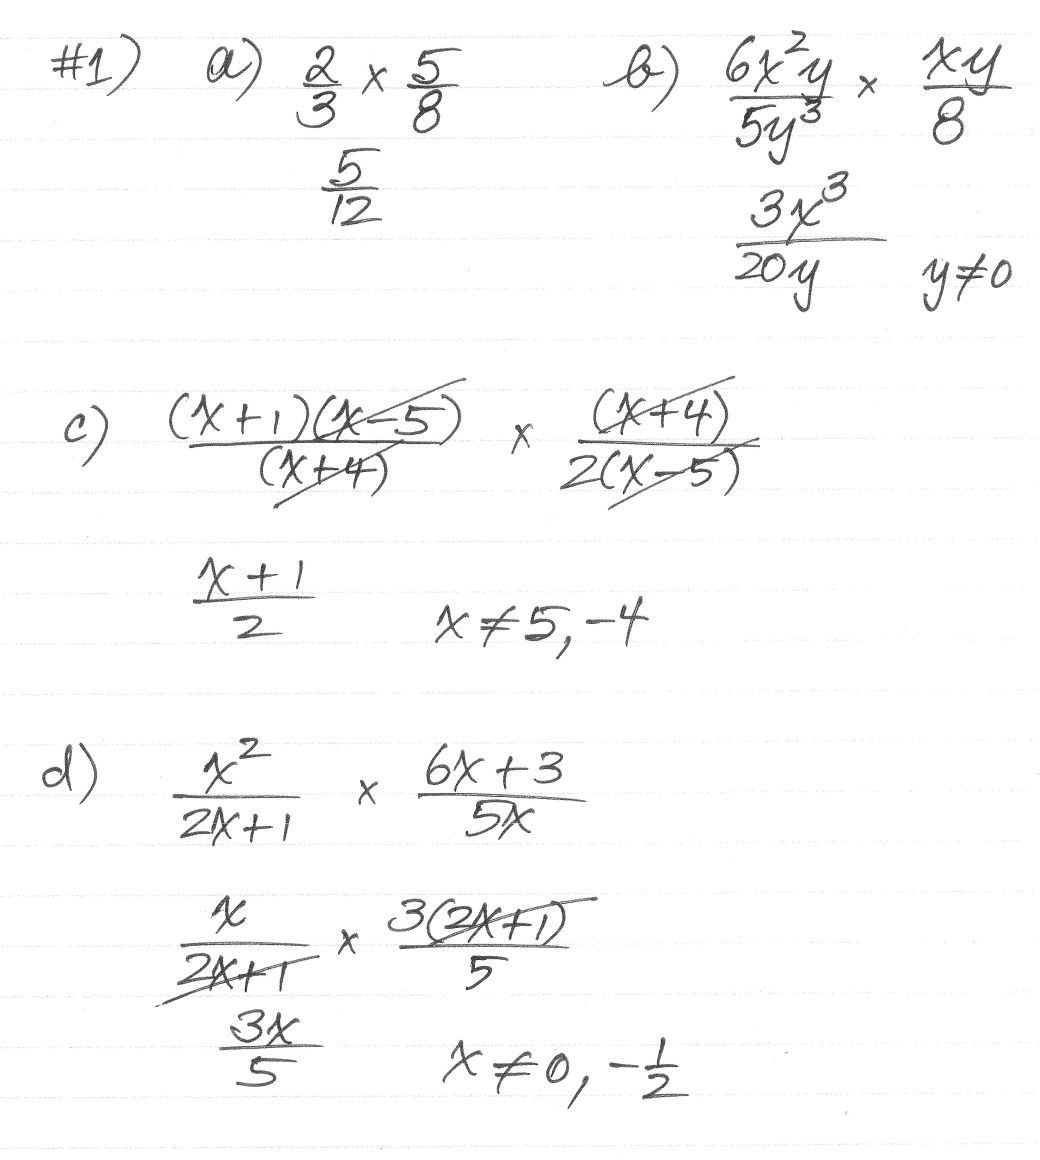 #1) a) 2/3 × 5/8 b) 6x²y/5y³ × xy/8
5/12 3x³/20y y≠0
c) (x+1)(x-5)/(x+4) × (x+4)/2(x-5)
x+1/2 x≠5, -4
d) x²/2x+1 × 6x+3/5x
x/2x+1 × 3(2x+1)/5
3x/5 x≠0, -1/2